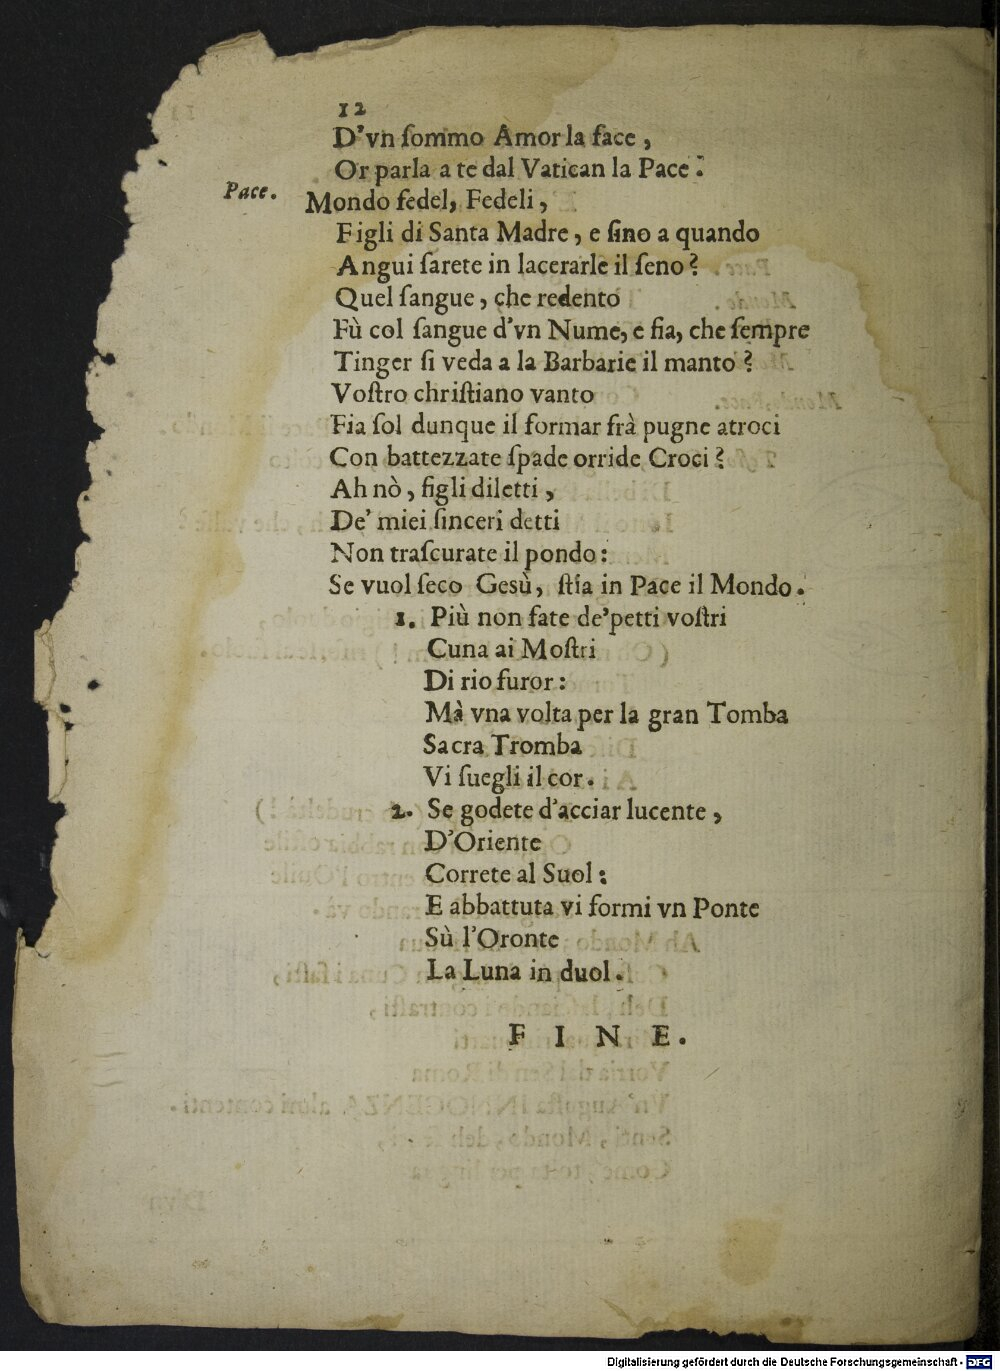 12
D'vn ſommo Amor la face,
Or parla a te dal Vatican la Pace.
Pace. Mondo fedel, Fedeli,
Figli di Santa Madre, e ſino a quando
Angui ſarete in lacerarle il ſeno?
Quel ſangue, che redento
Fù col ſangue d'vn Nume, e fia, che ſempre
Tinger ſi veda a la Barbarie il manto?
Voſtro chriſtiano vanto
Fia ſol dunque il formar frà pugne atroci
Con battezzate ſpade orride Croci?
Ah nò, figli diletti,
De' miei ſinceri detti
Non traſcurate il pondo:
Se vuol ſeco Gesù, ſtia in Pace il Mondo.
1. Più non fate de'petti voſtri
Cuna ai Moſtri
Di rio furor:
Mà vna volta per la gran Tomba
Sacra Tromba
Vi ſuegli il cor.
2. Se godete d'acciar lucente,
D'Oriente
Correte al Suol:
E abbattuta vi formi vn Ponte
Sù l'Oronte
La Luna in duol.
FINE.
Digitalisierung gefördert durch die Deutsche Forschungsgemeinschaft - DFG